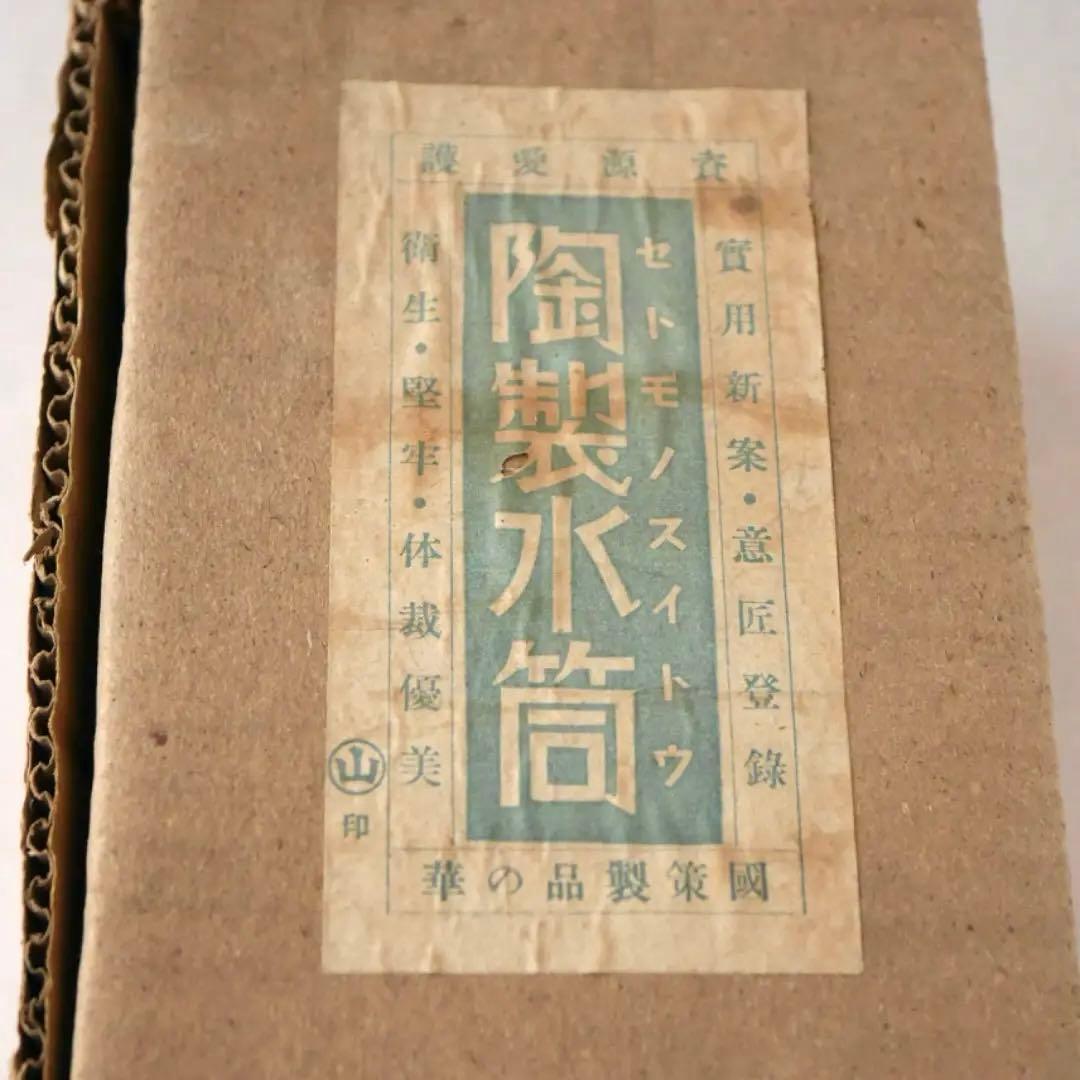 資源愛護
實用新案・意匠登錄
セトモノスイトウ
陶製水筒
衛生・堅牢・体裁優美
國策製品の華
山
印